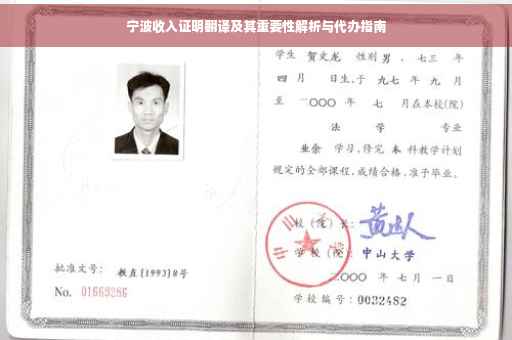 宁波收入证明翻译及其重要性解析与代办指南
学生 贺文龙 性别 男 、七三 年
四 月 日生,于 九七 年 九 月
至 二〇〇〇 年 七 月在本校(院)
法 学 专业
业余 学习,修完 本 科教学计划
规定的全部课程,成绩合格,准予毕业。
校(院)长:
学校(院): 中山大学
二〇〇〇 年 七 月 一 日
批准文号: 教直[1993]8号
No. 01669286
学校编号: 0032482